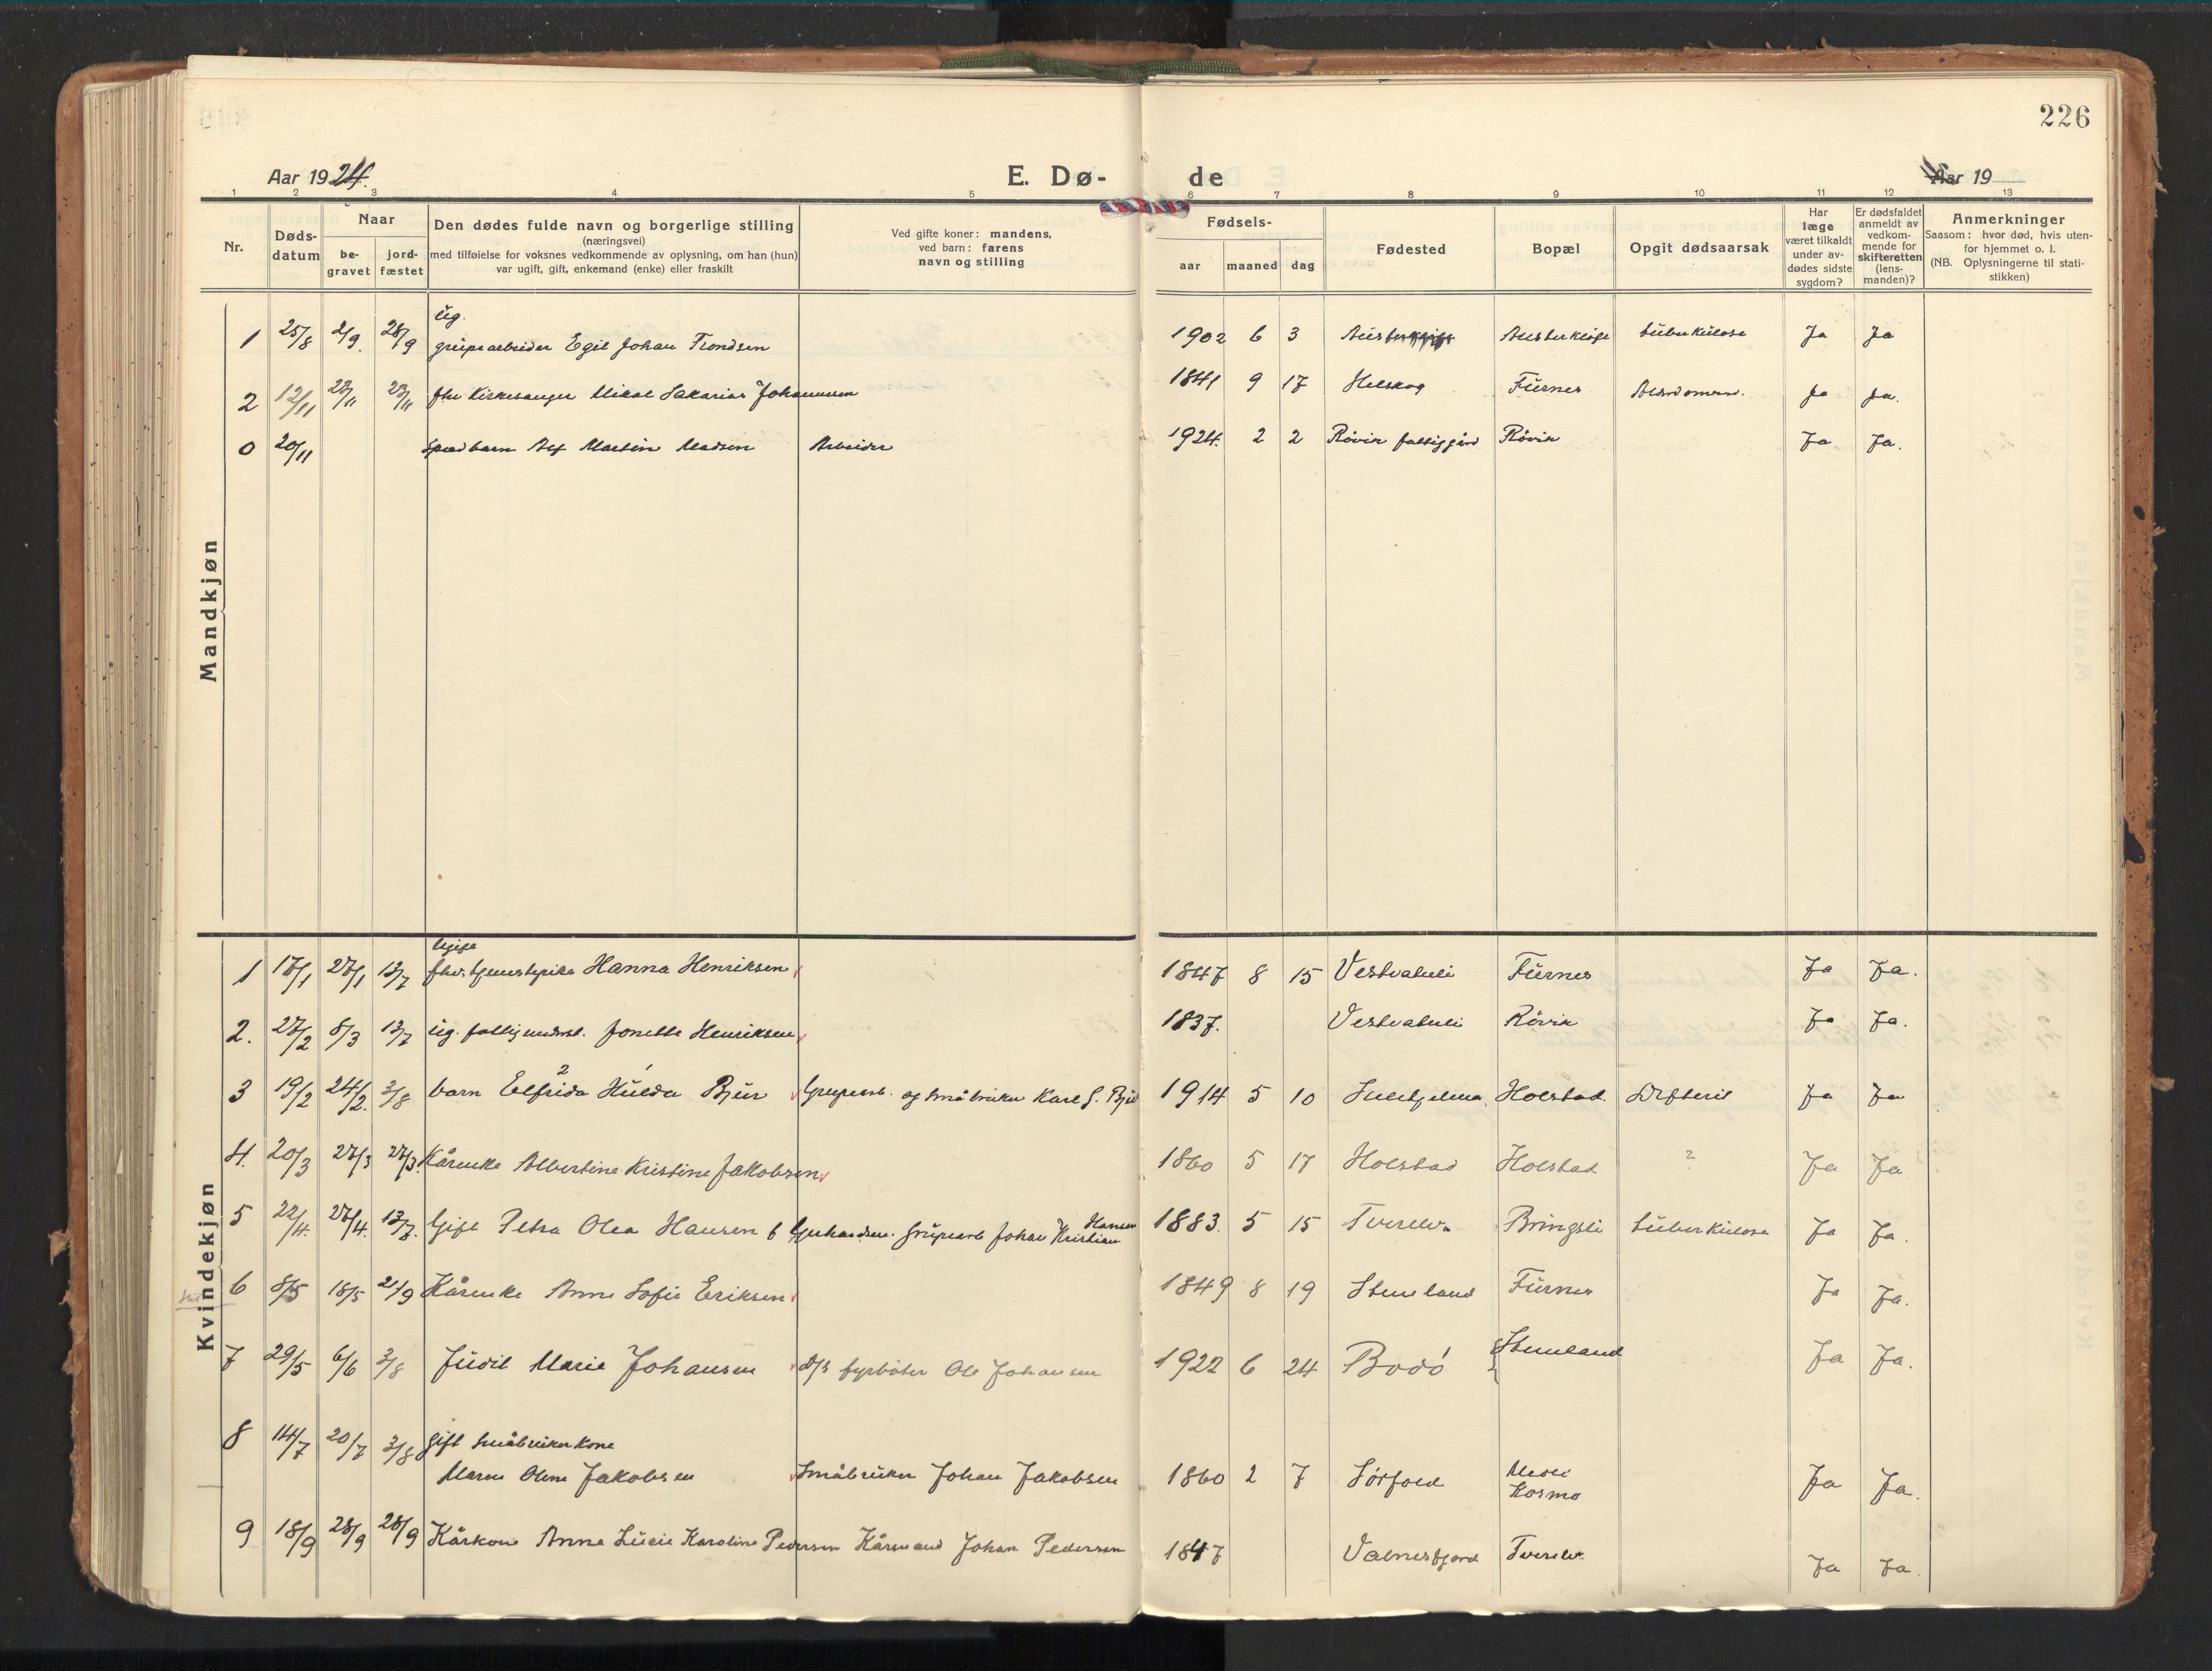 226
Aar 1924.
E. Dø-
de
Aar 19
1 2 3 4 5 6 7 8 9 10 11 12 13
Nr.
Døds-
datum
Naar
be-
gravet
jord-
fæstet
Den dødes fulde navn og borgerlige stilling
(næringsvei)
med tilføielse for voksnes vedkommende av oplysning, om han (hun)
var ugift, gift, enkemand (enke) eller fraskilt
Ved gifte koner: mandens,
ved barn: farens
navn og stilling
Fødsels-
aar maaned dag
Fødested
Bopæl
Opgit dødsaarsak
Har
læge
været tilkaldt
under av-
dødes sidste
sygdom?
Er dødsfaldet
anmeldt av
vedkom-
mende for
skifteretten
(lens-
manden)?
Anmerkninger
Saasom: hvor død, hvis uten-
for hjemmet o. l.
(NB. Oplysningerne til stati-
stikken)
Mandkjøn
ug.
1 25/8 2/9. 28/9 grubearbeider Egil Johan Trondsen 1902 6 3 Austerkløft tuberkulose Ja Ja
2 12/11 23/11 23/11 fhv kirkesanger Mikal Sakarias Johannesen 1841 9 17 Helskog Furnes Alderdomssv. Ja Ja.
0 20/11 Spædbarn Alf Martin Madsen Arbeider 1924. 2 2 Røvik fattiggård Røvik Ja Ja.
Kvindekjøn
Ugift
1 17/1 27/1 13/7 fhv. tjenestepike Hanna Henriksen 1847 8 15 Vestvatnli Furnes Ja Ja.
2. 27/2 8/3 13/7 ug. fattigunderst. Jonette Henriksen 1837. Vestvatnli Røvik Ja Ja.
2 1
3 19/2 24/2. 3/8 barn Elfrida Hulda Bjur Grubearb. og småbruker Karl G. Bjur 1914 5 10 Sulitjelma Holstad. Difterit Ja Ja
4. 20/3 27/3 27/3. Kårenke Albertine Kristine Jakobsen 1860 5 17 Holstad Holstad ? Ja Ja
5 22/4. 27/4. 13/7. Gift Petra Olea Hansen f Gerhardsen. Grubearb Johan Kristian Hansen 1883. 5 15 Tverelv. Bringsli tuberkulose Ja Ja.
6 8/5 18/5 21/9 Kårenke Anne Sofie Eriksen 1849 8 19 Stemland Furnes Ja Ja.
7 29/5 6/6 3/8 Judit Marie Johansen d/s fyrbøter Ole Johansen 1922 6 24 Bodø Stemland Ja Ja.
8 14/7 20/7 3/8 gift småbrukerkone
Maren Oline Jakobsen Småbruker Johan Jakobsen 1860 2 7 Sørfold Medli
Kosmo Ja Ja.
9 18/9 28/9 28/9 Kårkone Anne Lucie Karoline Pedersen Kårmand Johan Pedersen 1847 Valnesfjord Tverelv. Ja Ja.